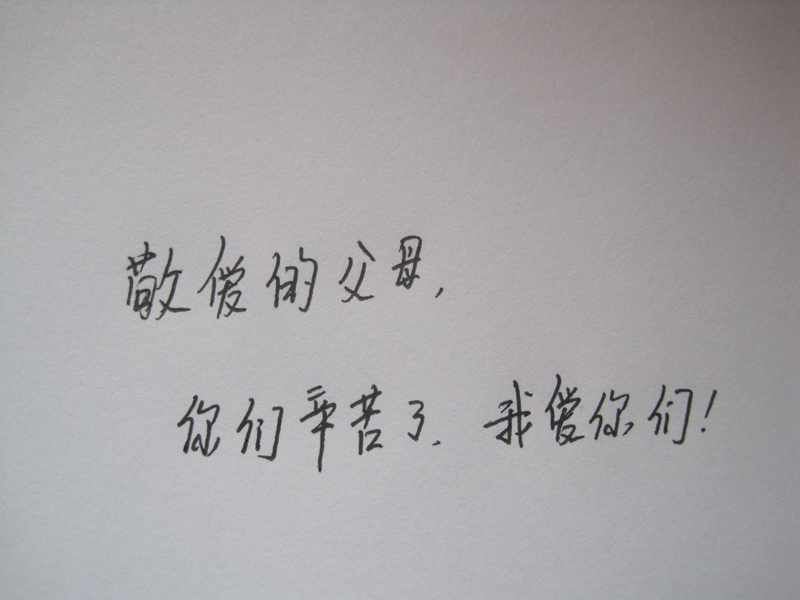 敬爱的父母,
你们辛苦了.我爱你们!